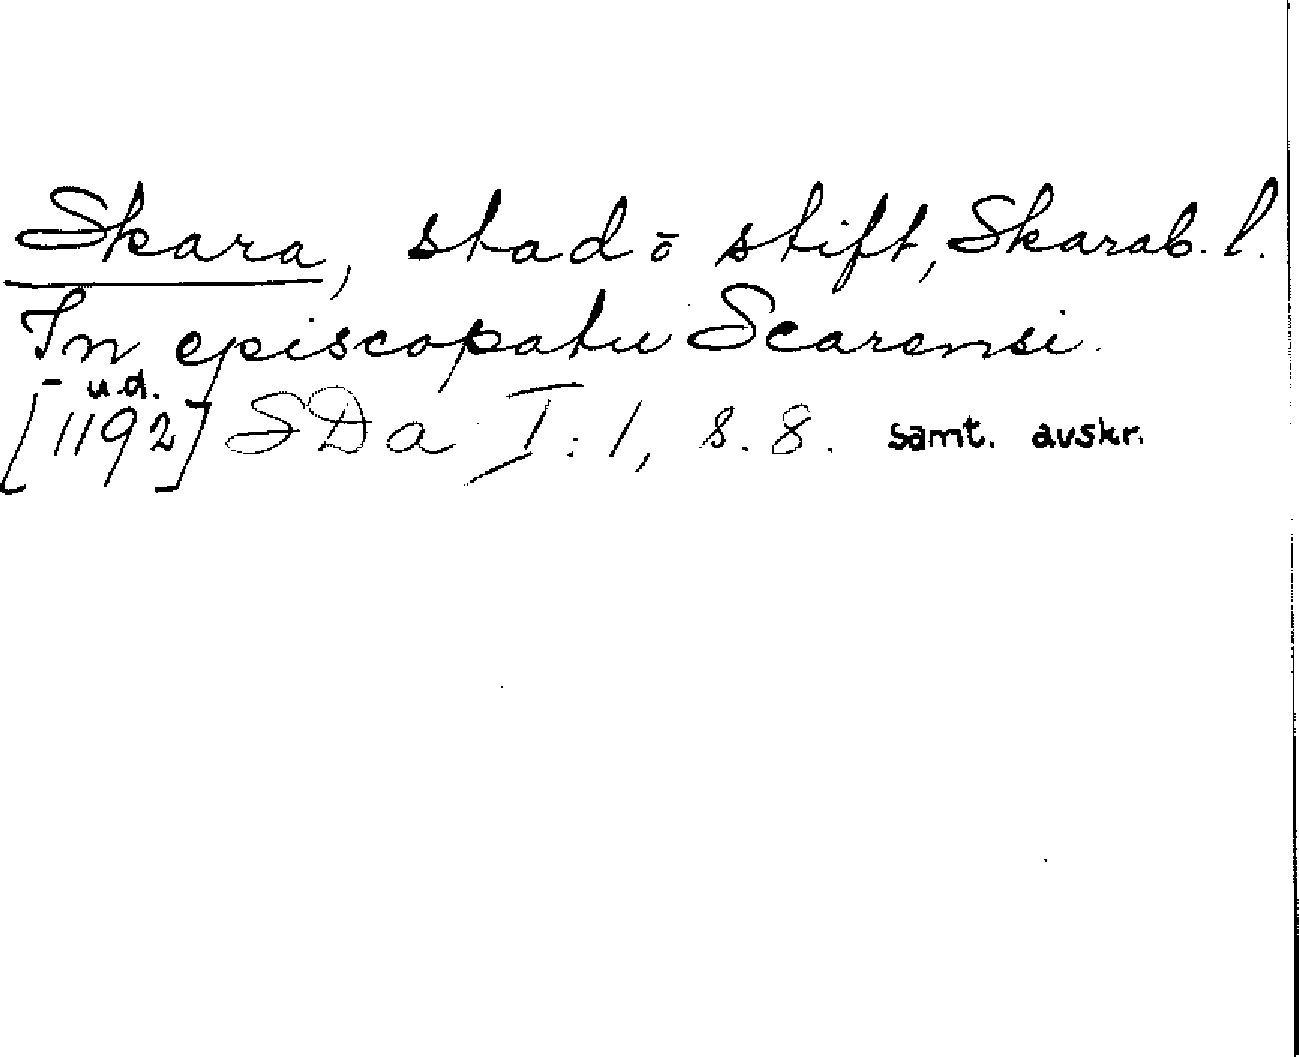 Skara, stad ō stift, Skarab. l.
In episcopatu Scarensi.
- u.d.
[1192] SDa I:1, s. 8. samt. avskr.